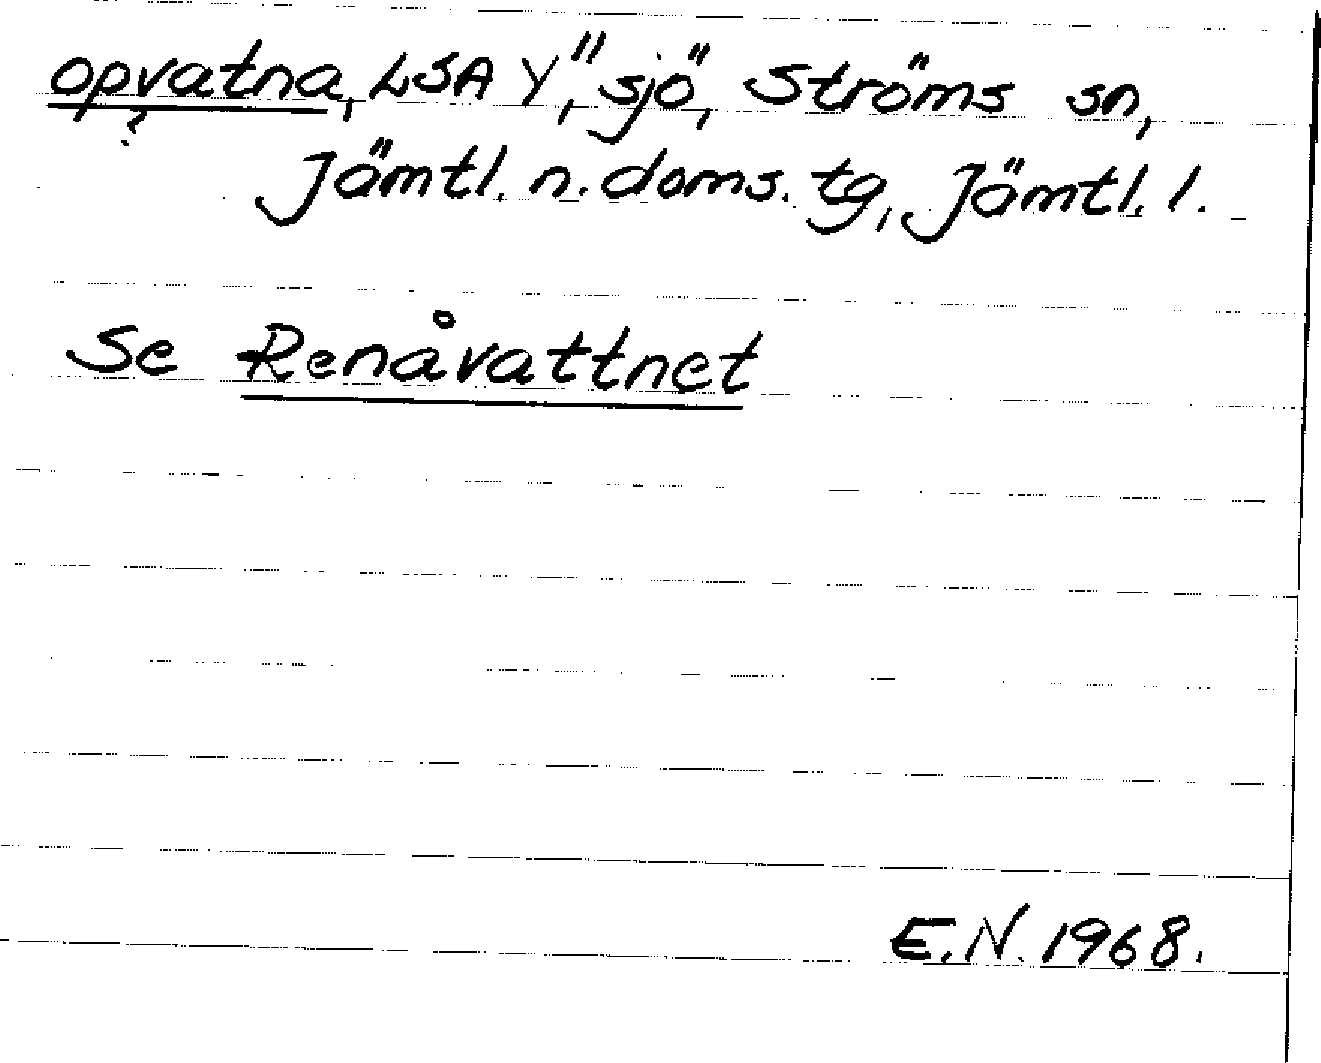 opvatna, LSA Y, "sjö", Ströms sn,
?
Jämtl. n. doms. tg, Jämtl. l.
Se Renåvattnet
E.N. 1968.